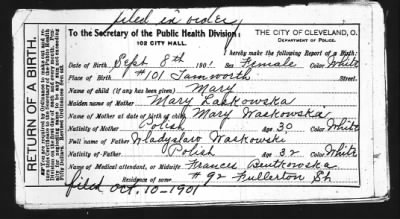 filed in order
To the Secretary of the Public Health Division:
102 CITY HALL.
THE CITY OF CLEVELAND, O.
DEPARTMENT OF POLICE.
I hereby make the following Report of a Birth:
Date of Birth Sept 8th 1901 Sex Female Color White
Place of Birth #101 Tamworth Street.
Name of child (if any has been given) Mary
Maiden name of Mother Mary Laskowska
Name of Mother at date of birth of child Mary Waskowska
Nativity of Mother Polish Age 30 Color White
Full name of Father Wladyslaw Waskowski
Nativity of Father Polish Age 32 Color White
Name of Medical attendant, or Midwife Frances Butkowska
Residence of same #92 Fullerton St
filed Oct. 10-1901
RETURN OF A BIRTH.